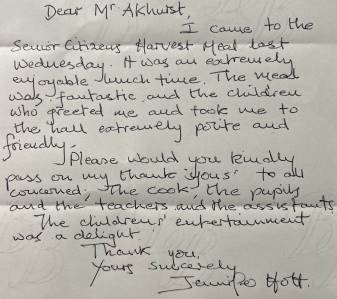 Dear Mr Akhurst,
I came to the
Senior Citizens Harvest Meal last
Wednesday. It was an extremely
enjoyable lunch time. The meal
was fantastic and the children
who greeted me and took me to
the hall extremely polite and
friendly.
Please would you kindly
pass on my thank yous' to all
concerned, the cook, the pupils
and the teachers and the assistants
The childrens' entertainment
was a delight
Thank you,
Yours sincerely
Jennifer